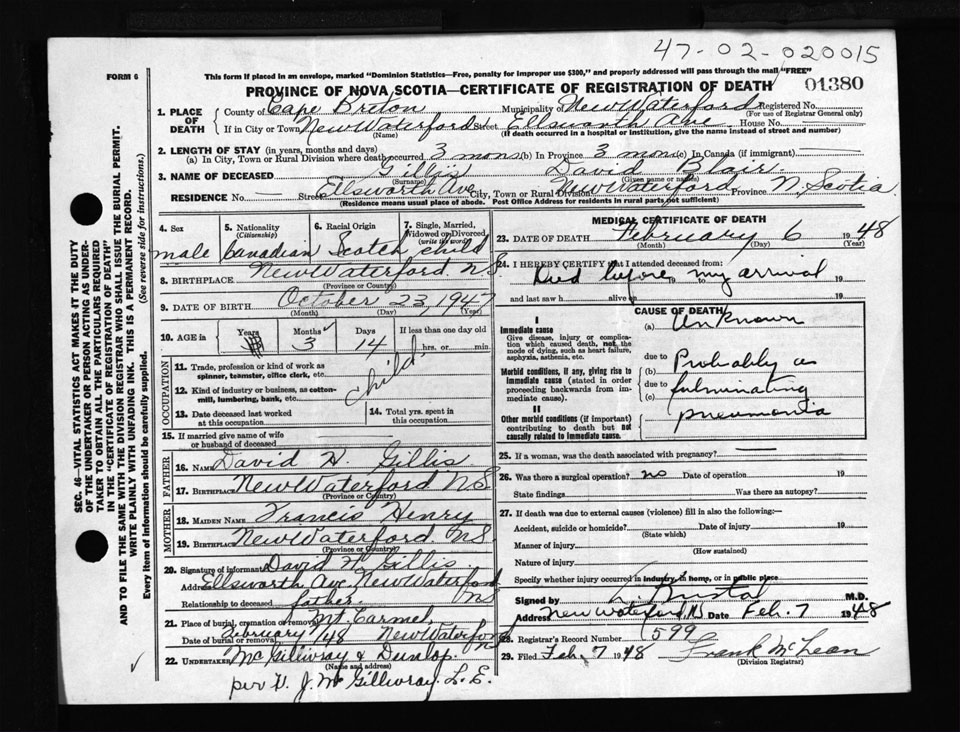 47-02-020015
FORM 6
This form if placed in an envelope, marked "Dominion Statistics—Free, penalty for improper use $300," and properly addressed will pass through the mail "FREE"
PROVINCE OF NOVA SCOTIA—CERTIFICATE OF REGISTRATION OF DEATH
01380
1. PLACE OF DEATH
County of Cape Breton Municipality of New Waterford Registered No.
(For use of Registrar General only)
If in City or Town New Waterford Street Ellsworth Ave House No.
(If death occurred in a hospital or institution, give the name instead of street and number)
2. LENGTH OF STAY (in years, months and days)
(a) In City, Town or Rural Division where death occurred 3 mons (b) In Province 3 mons (c) In Canada (if immigrant)
3. NAME OF DECEASED Gillis David Blair
(Surname) (Given name or names)
RESIDENCE No Street Ellsworth Ave City, Town or Rural Division New Waterford Province N. Scotia
(Residence means usual place of abode. Post Office Address for residents in rural parts not sufficient)
4. Sex
5. Nationality (Citizenship)
6. Racial Origin
7. Single, Married, Widowed or Divorced (write the word)
male Canadian Scotch child
8. BIRTHPLACE New Waterford NS
(Province or Country)
9. DATE OF BIRTH October 23, 1947
(Month) (Day) (Year)
10. AGE in Years Months Days If less than one day old
3 14 hrs. or min.
OCCUPATION
11. Trade, profession or kind of work as spinner, teamster, office clerk, etc.
12. Kind of industry or business, as cotton-mill, lumbering, bank, etc.
child
13. Date deceased last worked at this occupation
14. Total yrs. spent in this occupation
15. If married give name of wife or husband of deceased
FATHER
16. NAME David H. Gillis
17. Birthplace New Waterford N.S.
(Province or Country)
MOTHER
18. MAIDEN NAME Francis Henry
19. BIRTHPLACE New Waterford NS.
(Province or Country)
20. Signature of informant David H Gillis
Address Ellsworth Ave New Waterford NS
Relationship to deceased father.
21. Place of burial, cremation or removal Mt. Carmel,
Date of burial or removal February /48 New Waterford NS
22. UNDERTAKER McGillivray & Dunlop.
(Name and address)
per V. J. McGillivray. L.E.
MEDICAL CERTIFICATE OF DEATH
23. DATE OF DEATH February 6 1948
(Month) (Day) (Year)
24. I HEREBY CERTIFY that I attended deceased from:
Died before my arrival
19 to 19
and last saw h alive on 19
CAUSE OF DEATH
I
Immediate cause
Give disease, injury or complication which caused death, not the mode of dying, such as heart failure, asphyxia, asthenia, etc.
(a) Unknown
due to
Morbid conditions, if any, giving rise to immediate cause (stated in order proceeding backwards from immediate cause).
(b) Probably as
due to
(c) fulminating
pneumonia
II
Other morbid conditions (if important) contributing to death but not causally related to immediate cause.
25. If a woman, was the death associated with pregnancy?
26. Was there a surgical operation? no Date of operation 19
State findings Was there an autopsy?
27. If death was due to external causes (violence) fill in also the following:—
Accident, suicide or homicide? Date of injury 19
(State which)
Manner of injury
(How sustained)
Nature of injury
Specify whether injury occurred in industry, in home, or in public place
Signed by M.D.
Address New Waterford NS Date Feb. 7 1948
28. Registrar's Record Number 599
29. Filed Feb. 7 1948 Frank McLean
(Division Registrar)
SEC. 46—VITAL STATISTICS ACT MAKES IT THE DUTY
OF THE UNDERTAKER OR PERSON ACTING AS UNDER-
TAKER TO OBTAIN ALL THE PARTICULARS REQUIRED
IN THE "CERTIFICATE OF REGISTRATION OF DEATH"
AND TO FILE THE SAME WITH THE DIVISION REGISTRAR WHO SHALL ISSUE THE BURIAL PERMIT.
WRITE PLAINLY WITH UNFADING INK. THIS IS A PERMANENT RECORD.
Every item of information should be carefully supplied. (See reverse side for instructions.)